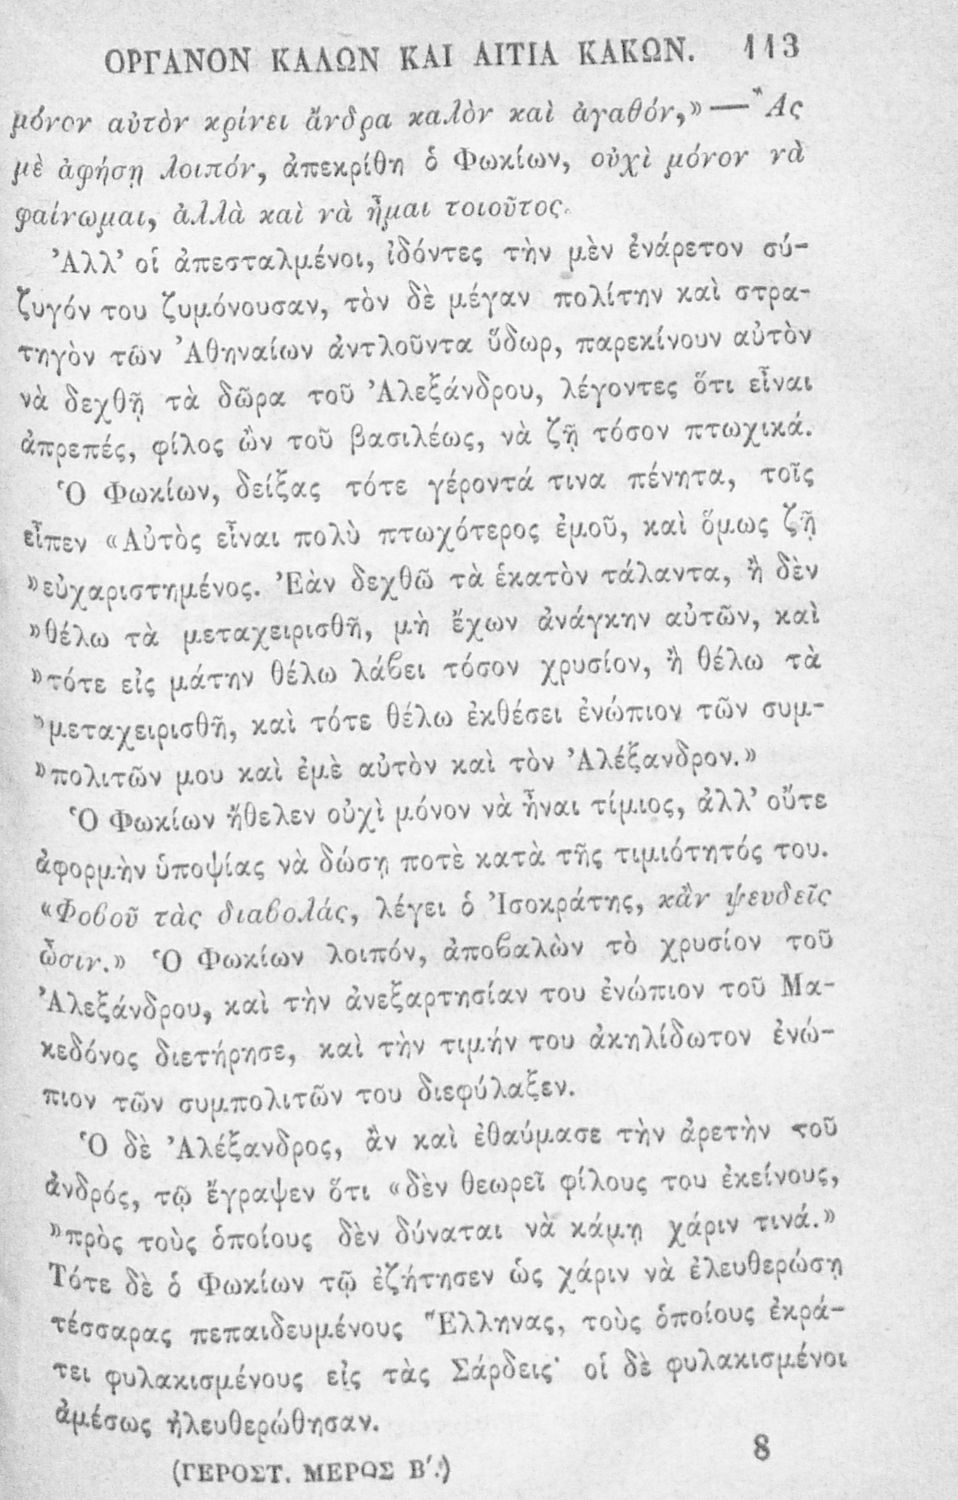 ΟΡΓΑΝΟΝ ΚΑΛΩΝ ΚΑΙ ΑΙΤΙΑ ΚΑΚΩΝ. 113
μόνον αὐτὸν κρίνει ἄνδρα καλὸν καὶ ἀγαθόν,» — Ἂς
μὲ ἀφήσῃ λοιπόν, ἀπεκρίθη ὁ Φωκίων, οὐχὶ μόνον νὰ
φαίνωμαι, ἀλλὰ καὶ νὰ ἦμαι τοιοῦτος.
Ἀλλ’ οἱ ἀπεσταλμένοι, ἰδόντες τὴν μὲν ἐνάρετον σύ-
ζυγόν του ζυμόνουσαν, τὸν δὲ μέγαν πολίτην καὶ στρα-
τηγὸν τῶν Ἀθηναίων ἀντλοῦντα ὕδωρ, παρεκίνουν αὐτὸν
νὰ δεχθῇ τὰ δῶρα τοῦ Ἀλεξάνδρου, λέγοντες ὅτι εἶναι
ἀπρεπές, φίλος ὢν τοῦ βασιλέως, νὰ ζῇ τόσον πτωχικά.
Ὁ Φωκίων, δείξας τότε γέροντά τινα πένητα, τοῖς
εἶπεν «Αὐτὸς εἶναι πολὺ πτωχότερος ἐμοῦ, καὶ ὅμως ζῇ
»εὐχαριστημένος. Ἐὰν δεχθῶ τὰ ἑκατὸν τάλαντα, ἢ δὲν
»θέλω τὰ μεταχειρισθῆ, μὴ ἔχων ἀνάγκην αὐτῶν, καὶ
»τότε εἰς μάτην θέλω λάβει τόσον χρυσίον, ἢ θέλω τὰ
»μεταχειρισθῆ, καὶ τότε θέλω ἐκθέσει ἐνώπιον τῶν συμ-
»πολιτῶν μου καὶ ἐμὲ αὐτὸν καὶ τὸν Ἀλέξανδρον.»
Ὁ Φωκίων ἤθελεν οὐχὶ μόνον νὰ ἦναι τίμιος, ἀλλ’ οὔτε
ἀφορμὴν ὑποψίας νὰ δώσῃ ποτὲ κατὰ τῆς τιμιότητός του.
«Φοβοῦ τὰς διαβολάς, λέγει ὁ Ἰσοκράτης, κἂν ψευδεῖς
ὦσιν.» Ὁ Φωκίων λοιπόν, ἀποβαλὼν τὸ χρυσίον τοῦ
Ἀλεξάνδρου, καὶ τὴν ἀνεξαρτησίαν του ἐνώπιον τοῦ Μα-
κεδόνος διετήρησε, καὶ τὴν τιμήν του ἀκηλίδωτον ἐνώ-
πιον τῶν συμπολιτῶν του διεφύλαξεν.
Ὁ δὲ Ἀλέξανδρος, ἂν καὶ ἐθαύμασε τὴν ἀρετὴν τοῦ
ἀνδρός, τῷ ἔγραψεν ὅτι «δὲν θεωρεῖ φίλους του ἐκείνους,
»πρὸς τοὺς ὁποίους δὲν δύναται νὰ κάμῃ χάριν τινά.»
Τότε δὲ ὁ Φωκίων τῷ ἐζήτησεν ὡς χάριν νὰ ἐλευθερώσῃ
τέσσαρας πεπαιδευμένους Ἕλληνας, τοὺς ὁποίους ἐκρά-
τει φυλακισμένους εἰς τὰς Σάρδεις· οἱ δὲ φυλακισμένοι
ἀμέσως ἠλευθερώθησαν.
(ΓΕΡΟΣΤ. ΜΕΡΟΣ Β΄.) 8